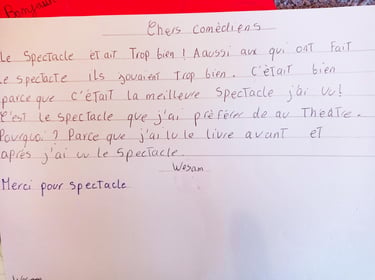 Bonjour
Chers comèdiens
Le Spectacle ètait Trop bien ! Aaussi aux qui ont fait
Le spectacte ils jouaient trop bien. C'ètait bien
parce que c'ètait la meilleure spectacle j'ai vu!
C'est le spectacle que j'ai prèfèrer de au Thèatre.
Pourquoi? Parce que j'ai lu le livre avant et
après j'ai vu le spectacle.
Wesam
Merci pour spectacle